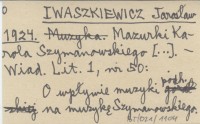 IWASZKIEWICZ Jarosław
1924. Muzyka. Mazurki Ka-
rola Szymanowskiego [...]. –
Wiad. Lit. 1, nr 50:
O wpływie muzyki podh.
na muzykę Szymanowskiego.